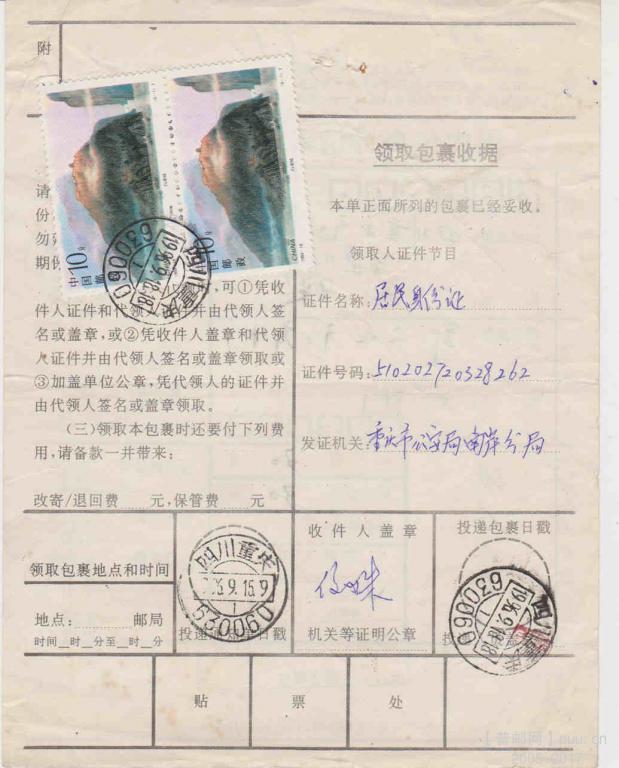 附
领取包裹收据
本单正面所列的包裹已经妥收。
领取人证件节目
证件名称：居民身份证
证件号码：510202720328262
发证机关：重庆市公安局南岸分局
请
份
勿
期
10分
中国邮
10分
中国邮政
CHINA
四川重庆
1996.9.18.18
630060
可①凭收
件人证件和代领人证件并由代领人签
名或盖章，或②凭收件人盖章和代领
人证件并由代领人签名或盖章领取或
③加盖单位公章，凭代领人的证件并
由代领人签名或盖章领取。
(三)领取本包裹时还要付下列费
用，请备款一并带来：
改寄/退回费 元，保管费 元
领取包裹地点和时间
地点： 邮局
时间__时__分至__时__分
四川重庆
96.9.16.9
1
630060
投递 日戳
收件人盖章
机关等证明公章
投递包裹日戳
四川重庆
1996.9.18.18
630060
贴 票 处
【普邮网】puu.cn
2005-2017